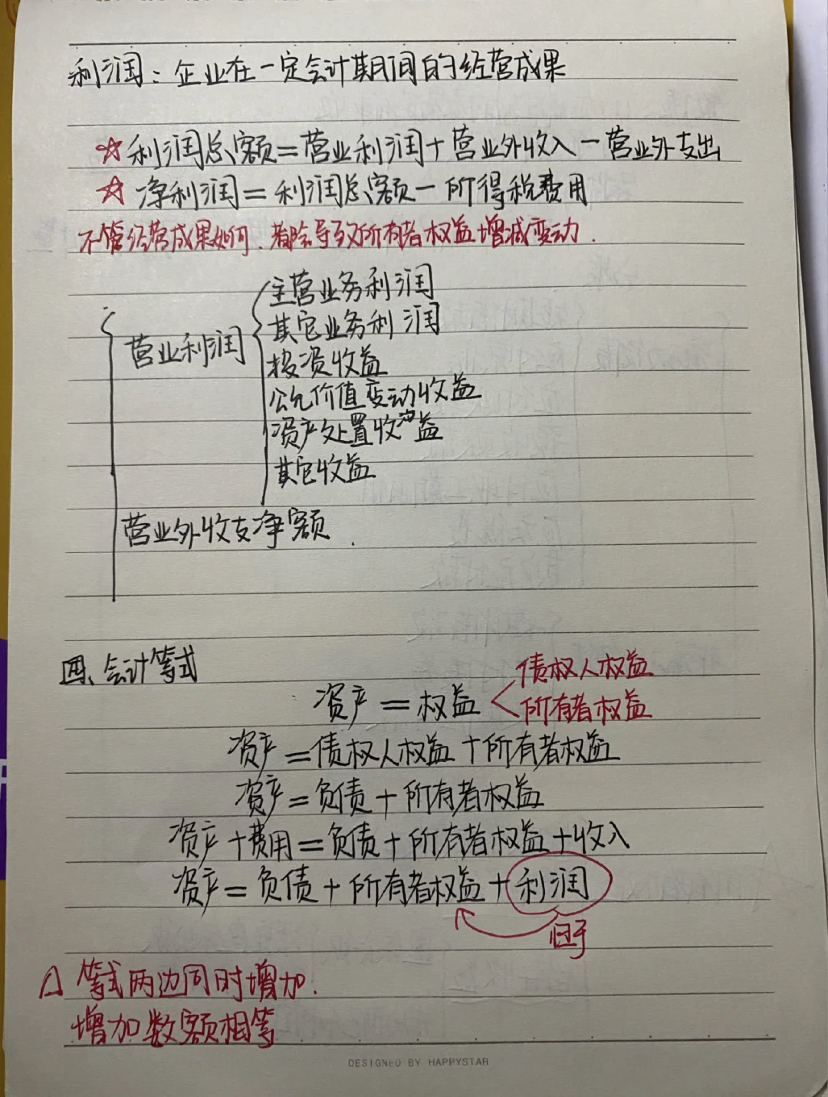 利润：企业在一定会计期间的经营成果
☆利润总额=营业利润+营业外收入-营业外支出
☆ 净利润=利润总额-所得税费用
不管经营成果如何,都会导致所有者权益增减变动.
主营业务利润
营业利润 其它业务利润
投资收益
公允价值变动收益
资产处置收益
其它收益
营业外收支净额.
四、会计等式
资产=权益<债权人权益
所有者权益
资产=债权人权益+所有者权益
资产=负债+所有者权益
资产+费用=负债+所有者权益+收入
资产=负债+所有者权益+利润
归于
△ 等式两边同时增加.
增加数额相等
DESIGNED BY HAPPYSTAR